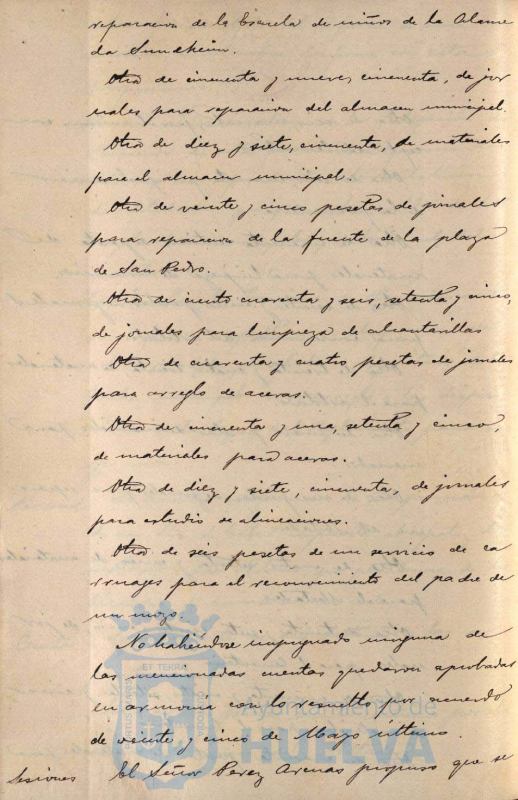 reparacion de la Escuela de niños de la Alame
da Sundheim.
Otra de cincuenta y nueve, cincuenta, de jor
nales para reparacion del almacen municipal.
Otra de diez y siete, cincuenta, de materiales
para el almacen municipal.
Otra de veinte y cinco pesetas de jornales
para reparacion de la fuente de la plaza
de San Pedro.
Otra de ciento cuarenta y seis, setenta y cinco,
de jornales para limpieza de alcantarillas
Otra de cuarenta y cuatro pesetas de jornales
para arreglo de aceras.
Otra de cincuenta y una, setenta y cinco,
de materiales para aceras.
Otra de diez y siete, cincuenta, de jornales
para estudio de alineaciones.
Otra de seis pesetas de un servicio de ca
rruages para el reconocimiento del padre de
un mozo.
No habiéndose impugnado ninguna de
las mencionadas cuentas quedaron aprobadas
en armonia con lo resuelto por acuerdo
de veinte y cinco de Mayo último.
Sesiones El Señor Perez Arenas propuso que se
ET TERRA
Ayuntamiento de
HUELVA